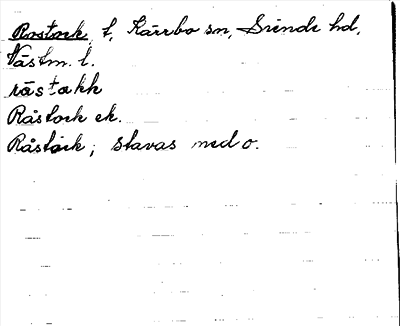 Rostock, t, Kärrbo sn, Siende hd,
Västm. l.
råstokk
Råstock ek.
Råstock; stavas med o.